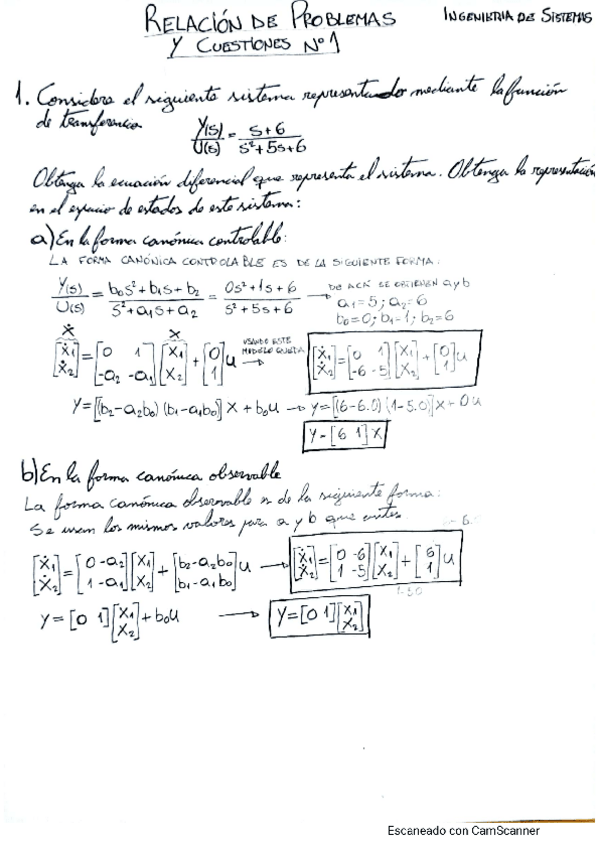 RELACIÓN DE PROBLEMAS
Y CUESTIONES Nº1
INGENIERIA DE SISTEMAS
1. Considere el siguiente sistema representado mediante la función
de transferencia
Y(s)/U(s) = s+6 / s²+5s+6
Obtenga la ecuación diferencial que representa el sistema. Obtenga la representación
en el espacio de estados de este sistema:
a) En la forma canónica controlable:
LA FORMA CANÓNICA CONTROLABLE ES DE LA SIGUIENTE FORMA:
Y(s)/U(s) = b₀s²+b₁s+b₂ / s²+a₁s+a₂ = 0s²+1s+6 / s²+5s+6 → DE ACÁ SE OBTIENEN a y b
a₁=5; a₂=6
b₀=0; b₁=1; b₂=6
Ẋ X
[ẋ₁ ẋ₂] = [0 1; -a₂ -a₁] [x₁ x₂] + [0 1] u → USANDO ESTE MODELO QUEDA [ẋ₁ ẋ₂] = [0 1; -6 -5] [x₁ x₂] + [0 1] u
Y=[(b₂-a₂b₀) (b₁-a₁b₀)] X + b₀u → y=[(6-6.0) (1-5.0)] X + 0u
Y=[6 1] X
b) En la forma canónica observable
La forma canónica observable es de la siguiente forma:
Se usan los mismos valores para a y b que antes
[ẋ₁ ẋ₂] = [0 -a₂; 1 -a₁] [x₁ x₂] + [b₂-a₂b₀ b₁-a₁b₀] u → [ẋ₁ ẋ₂] = [0 -6; 1 -5] [x₁ x₂] + [6 1] u
1-5.0
y=[0 1] [x₁ x₂] + b₀u → Y=[0 1] [x₁ x₂]
Escaneado con CamScanner